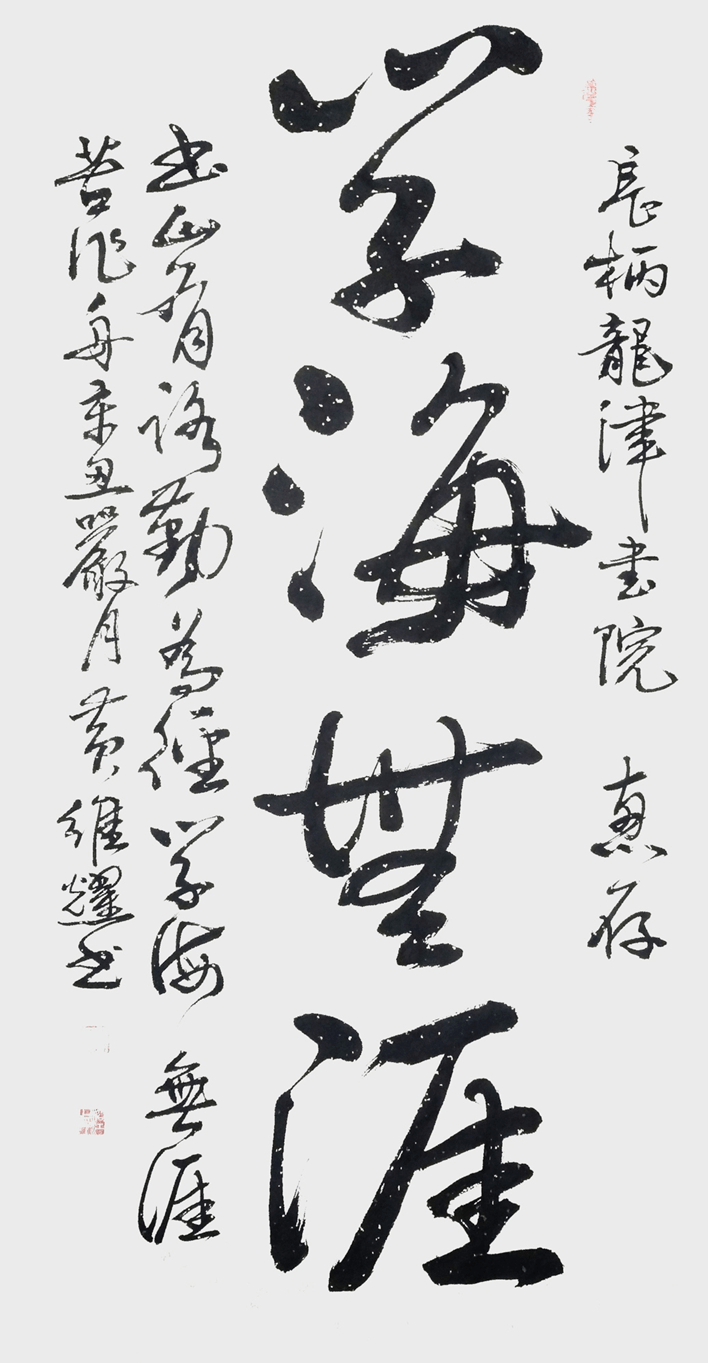 長柄龍津书院 惠存
学海無涯
书山有路勤為徑学海無涯
苦作舟辛丑嚴月黄維耀书